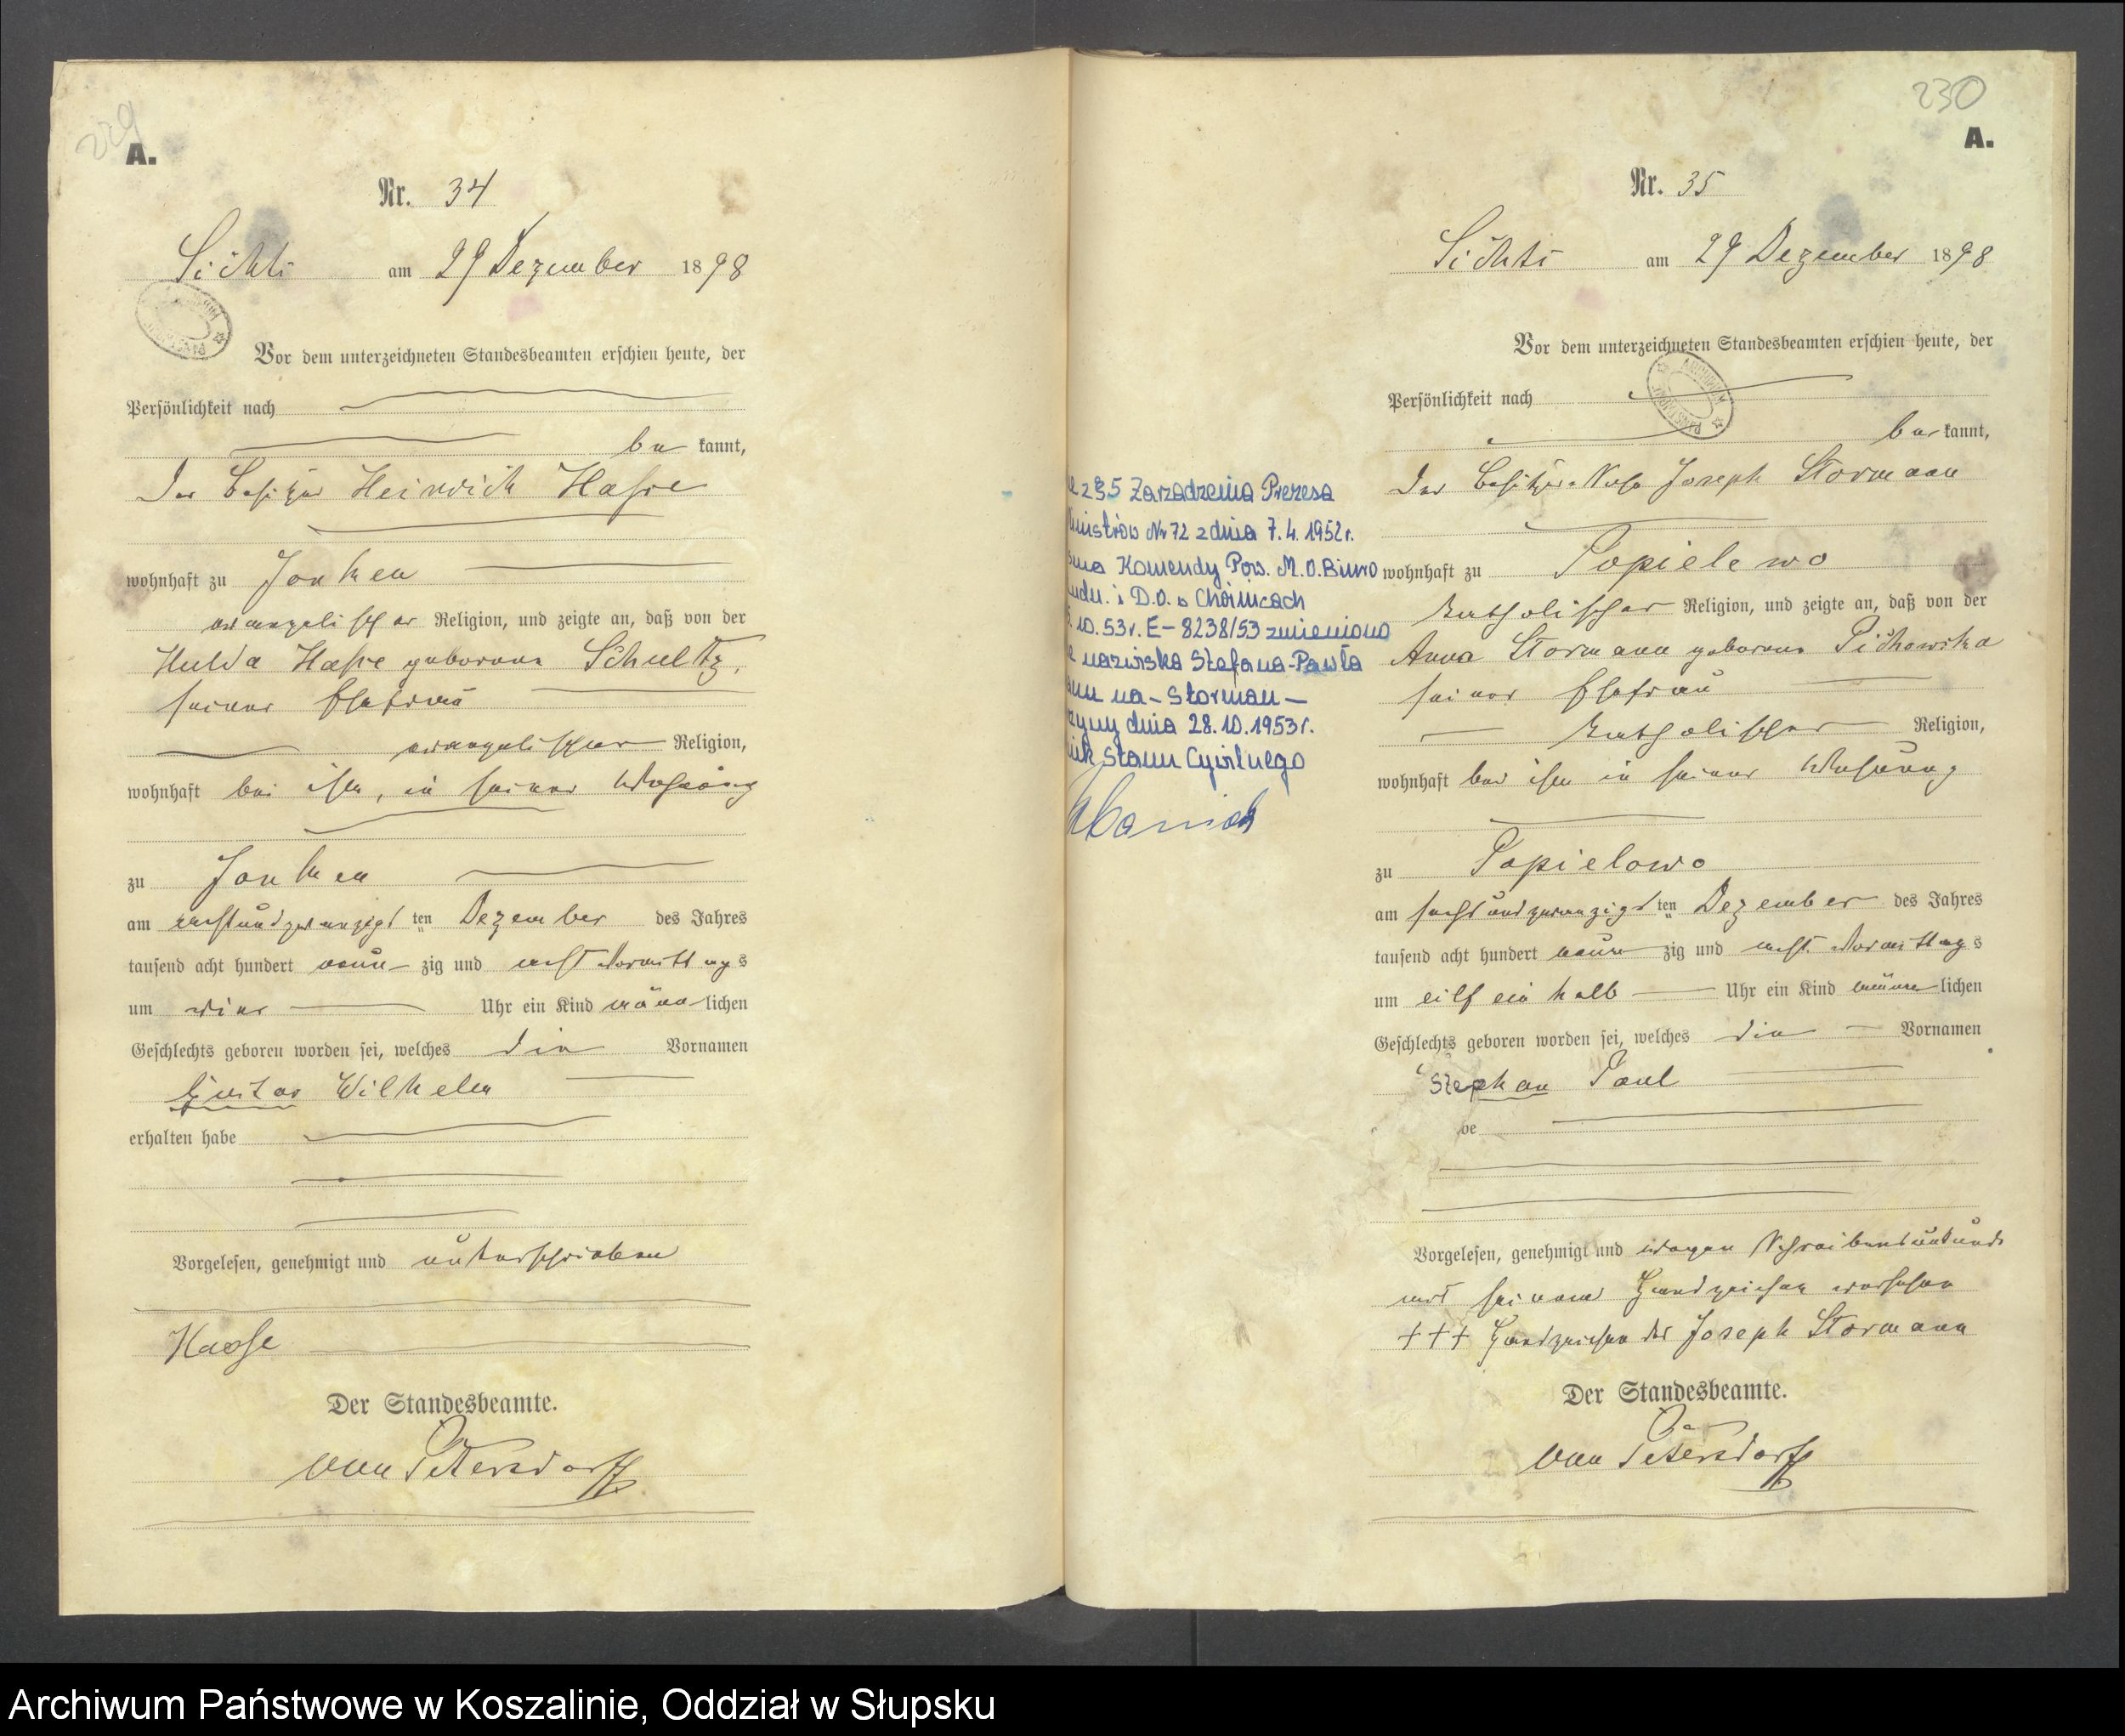 229
A.
Nr. 34
Sichts am 29 Dezember 1898
Vor dem unterzeichneten Standesbeamten erschien heute, der
Persönlichkeit nach
be kannt,
Der Besitzer Heinrich Hasse
wohnhaft zu Jonken
evangelischer Religion, und zeigte an, daß von der
Hulda Hasse geborene Schultz,
seiner Ehefrau
evangelischer Religion,
wohnhaft bei ihm, in seiner Wohnung
zu Jonken
am achtundzwanzigsten Dezember des Jahres
tausend acht hundert neun zig und acht Vormittags
um vier Uhr ein Kind männ lichen
Geschlechts geboren worden sei, welches die Vornamen
Gustav Wilhelm
erhalten habe
Vorgelesen, genehmigt und unterschrieben
Haase
Der Standesbeamte.
von Petersdorff
230
A.
Nr. 35
Sichts am 29 Dezember 1898
Vor dem unterzeichneten Standesbeamten erschien heute, der
Persönlichkeit nach
be kannt,
Der Besitzer Joseph Stormann
wohnhaft zu Popielewo
katholischer Religion, und zeigte an, daß von der
Anna Stormann geborene Pichowska
seiner Ehefrau
katholischer Religion,
wohnhaft bei ihm in seiner Wohnung
zu Popielewo
am sechsundzwanzigsten Dezember des Jahres
tausend acht hundert neun zig und acht Vormittags
um eilf ein halb Uhr ein Kind männ lichen
Geschlechts geboren worden sei, welches die Vornamen
Stephan Paul
be
Vorgelesen, genehmigt und wegen Schreibensunkunde
mit seinem Handzeichen versehen
+++ Handzeichen des Joseph Stormann
Der Standesbeamte.
von Petersdorff
z §5 Zarządzenia Prezesa
Ministrów Nr 72 z dnia 7.4.1952r.
Komendy Pow. M.O. Biuro
i D.O. w Chojnicach
10.53r. E-8238/53 zmieniono
nazwiska Stefana-Pawła
na - Storman -
dnia 28.10.1953r.
Stanu Cywilnego
ARCHIWUM PAŃSTWOWE
Archiwum Państwowe w Koszalinie, Oddział w Słupsku